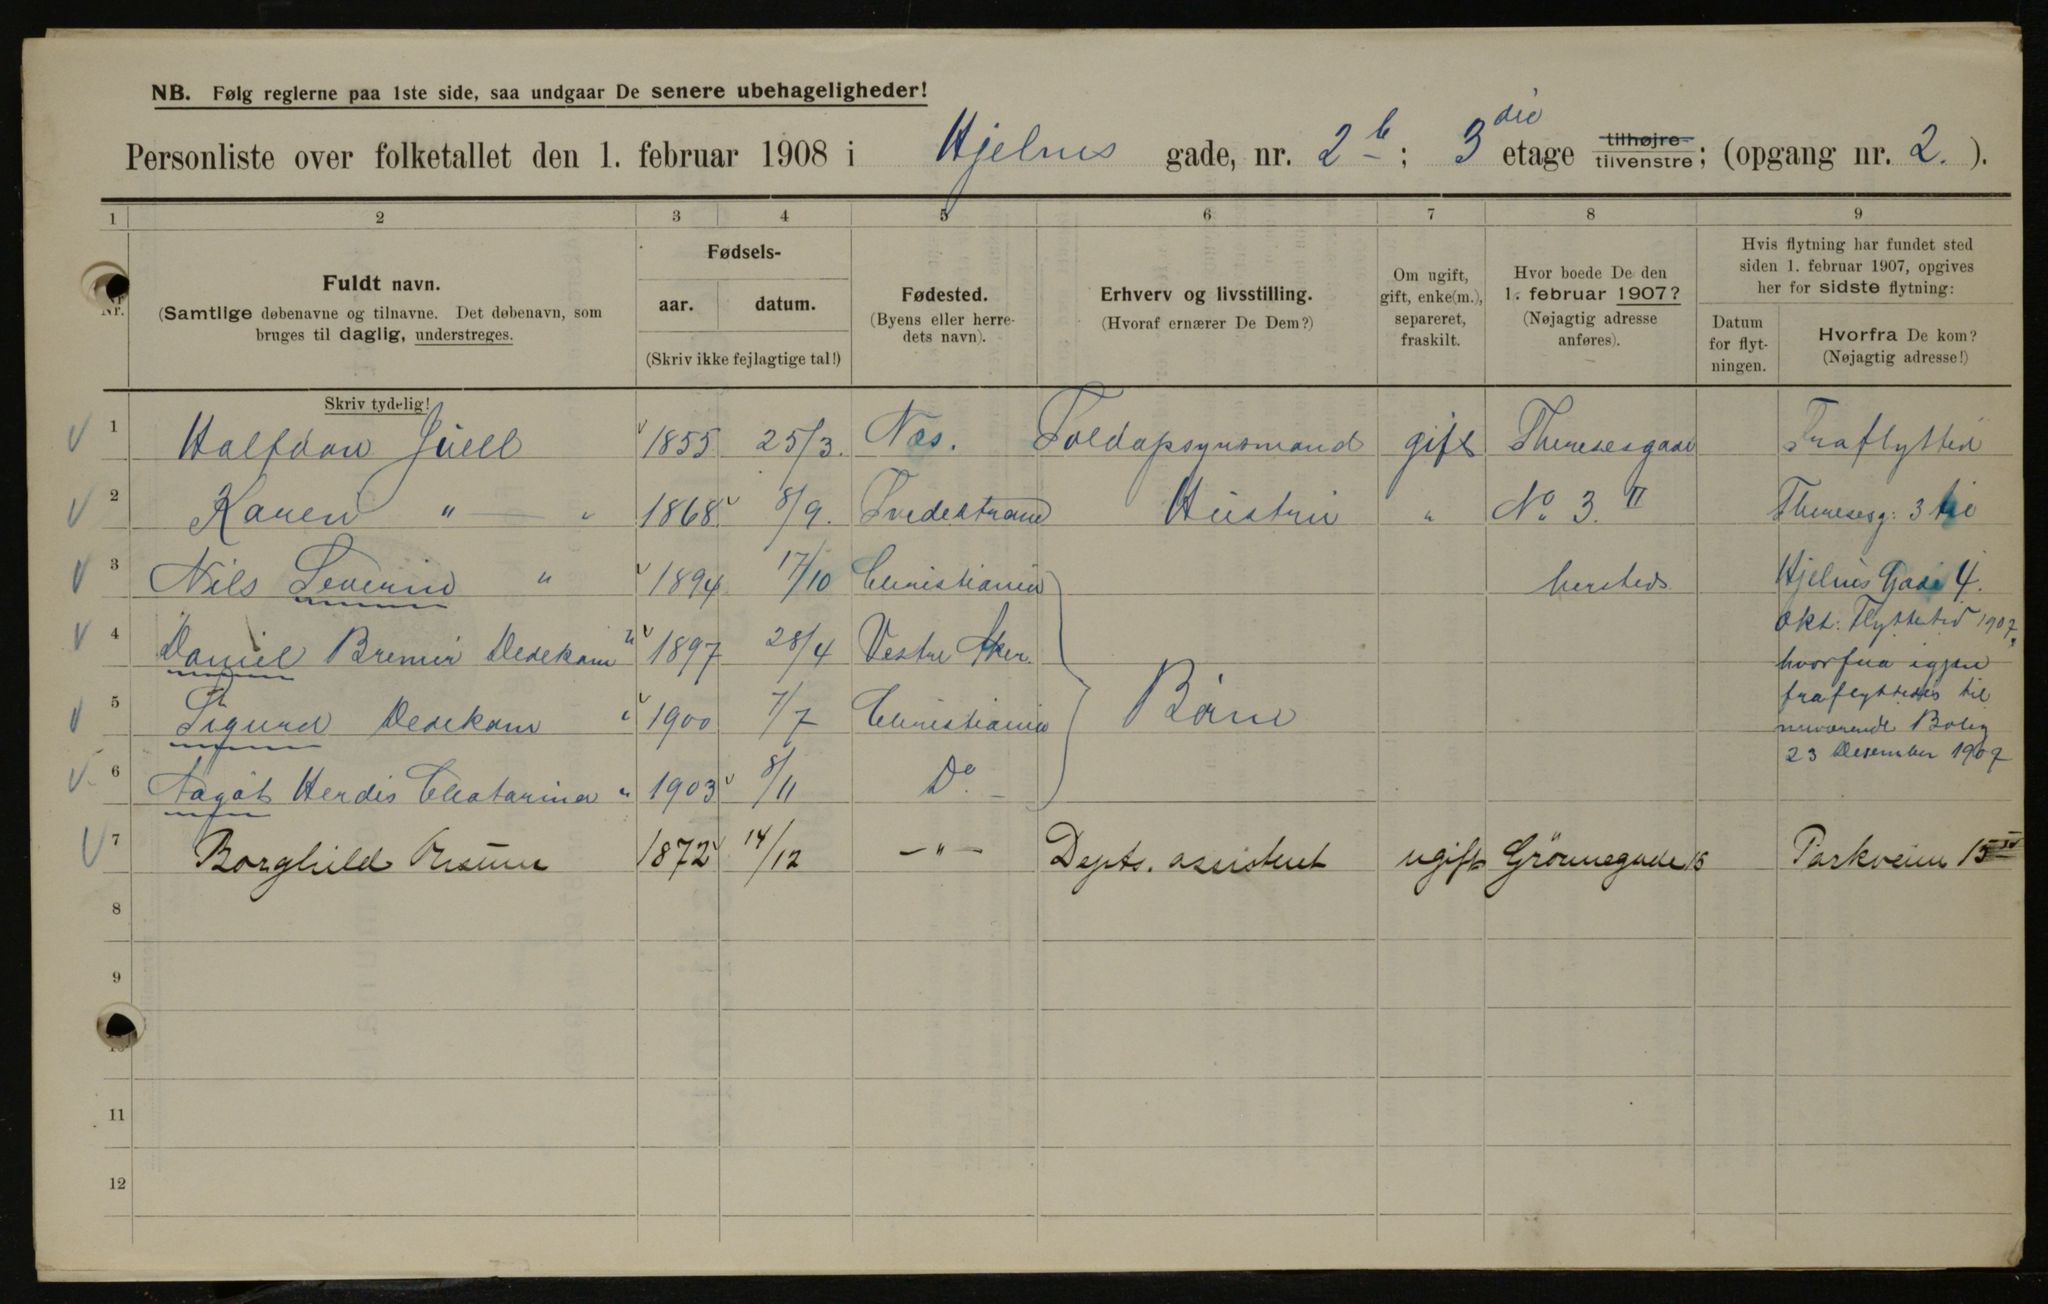 NB. Følg reglerne paa 1ste side, saa undgaar De senere ubehageligheder!
Personliste over folketallet den 1. februar 1908 i Hjelms gade, nr. 2 b; 3 die etage tilhøjre tilvenstre; (opgang nr. 2.).
1 2 3 4 5 6 7 8 9
Nr.
Fuldt navn.
(Samtlige døbenavne og tilnavne. Det døbenavn, som
bruges til daglig, understreges.
Fødsels-
aar. datum.
(Skriv ikke fejlagtige tal!)
Fødested.
(Byens eller herre-
dets navn).
Erhverv og livsstilling.
(Hvoraf ernærer De Dem?)
Om ugift,
gift, enke(m.),
separeret,
fraskilt.
Hvor boede De den
1. februar 1907?
(Nøjagtig adresse
anføres).
Hvis flytning har fundet sted
siden 1. februar 1907, opgives
her for sidste flytning:
Datum
for flyt-
ningen.
Hvorfra De kom?
(Nøjagtig adresse!)
Skriv tydelig!
1 Halfdan Juell 1855 25/3. Næs. Toldopsynsmand gift Theresesgade Fraflytted
2 Karen " " 1868 8/9. Tvedestrand Hustru " No. 3. II Theresesg: 3 til
3 Nils Severin " 1894 17/10 Christiania hersteds Hjelms Gade 4.
Okt: Flyttetid 1907,
4 Daniel Dedekam " 1897 28/4 Vestre Aker. hvorfra igjen
5 Sigurd Dedekam " 1900 7/7 Christiania Børn fraflyttedes til
nuværende Bolig
23 Desember 1907
6 Aagot Herdis Chatarina " 1903 8/11 Do.
7 Borghild 1872 14/12 — " — Depts. assistent ugift Grönnegade 15 Parkveien 15 IV
8
9
10
11
12